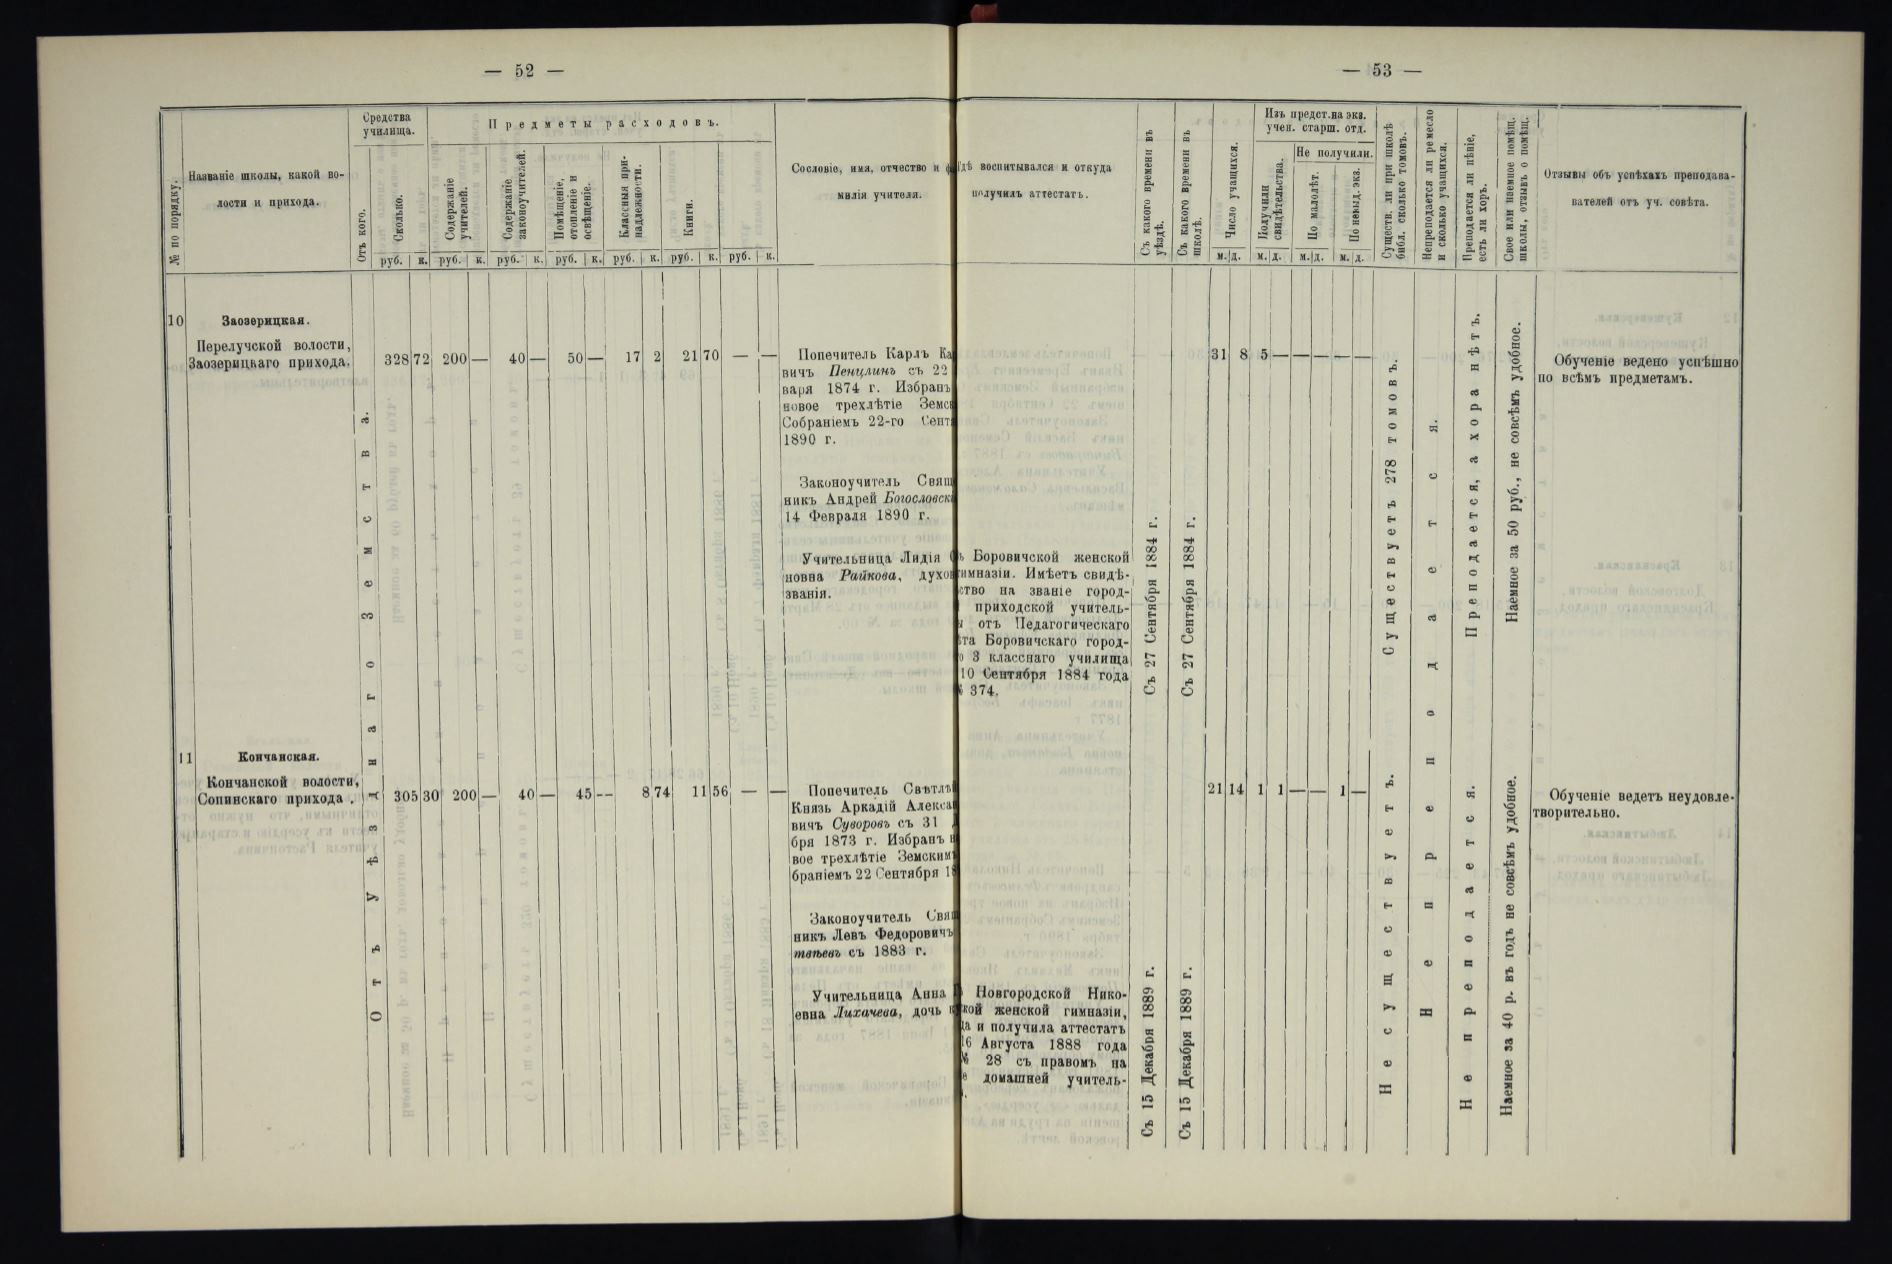 — 52 —
№ по порядку.
Названіе школы, какой во-
лости и прихода.
Средства
училища.
Отъ кого.
Сколько.
Предметы расходовъ.
Содержаніе
учителей.
Содержаніе
законоучителей.
Помѣщеніе,
отопленіе и
освѣщеніе.
Классныя при-
надлежности.
Книги.
руб. к. руб. к. руб. к. руб. к. руб. к. руб. к. руб. к.
Сословіе, имя, отчество и
милія учителя.
10
Заозерицкая.
Перелучской волости,
Заозерицкаго прихода.
328 72 200 — 40 — 50 — 17 2 21 70 — —
Отъ Уѣзднаго Земства.
Попечитель Карлъ
вичъ Пенцлинъ съ 22
варя 1874 г. Избранъ
новое трехлѣтіе
Собраніемъ 22-го
1890 г.
Законоучитель
никъ Андрей
14 Февраля 1890 г.
Учительница Лидія
новна Райкова,
званія.
11
Кончанская.
Кончанской волости,
Сопинскаго прихода.
305 30 200 — 40 — 45 — 8 74 11 56 — —
Попечитель
Князь Аркадій
вичъ Суворовъ съ 31
бря 1873 г. Избранъ
вое трехлѣтіе
браніемъ 22 Сентября
Законоучитель
никъ Левъ Федоровичъ
твѣевъ съ 1883 г.
Учительница Анна
евна Лихачева, дочь
— 53 —
воспитывался и откуда
получилъ аттестатъ.
Съ какого времени въ
уѣздѣ.
Съ какого времени въ
школѣ.
Число учащихся.
м. д.
Изъ предст. на экз.
учен. старш. отд.
Получили
свидѣтельства.
м. д.
Не получили.
По малолѣт.
м. д.
По невыд. экз.
м. д.
Существ. ли при школѣ
библ. сколько томовъ.
Непреподается ли ремесло
и сколько учащихся.
Преподается ли пѣніе,
есть ли хоръ.
Свое или наемное помѣщ.
школы, отзывъ о помѣщ.
Отзывы объ успѣхахъ преподава-
вателей отъ уч. совѣта.
Боровичской женской
гимназіи. Имѣетъ свидѣ-
ство на званіе город-
приходской учитель-
отъ Педагогическаго
Боровичскаго город-
3 класснаго училища
10 Сентября 1884 года
374.
Съ 27 Сентября 1884 г.
Съ 27 Сентября 1884 г.
31 8 5 — — — — —
Существуетъ 278 томовъ.
Не преподается.
Преподается, а хора нѣтъ.
Наемное за 50 руб., не совсѣмъ удобное.
Обученіе ведено успѣшно
по всѣмъ предметамъ.
Новгородской Нико-
кой женской гимназіи,
и получила аттестатъ
Августа 1888 года
28 съ правомъ на
домашней учитель-
Съ 15 Декабря 1889 г.
Съ 15 Декабря 1889 г.
21 14 1 1 — — 1 —
Не существуетъ.
Не преподается.
Наемное за 40 р. въ годъ не совсѣмъ удобное.
Обученіе ведетъ неудовле-
творительно.